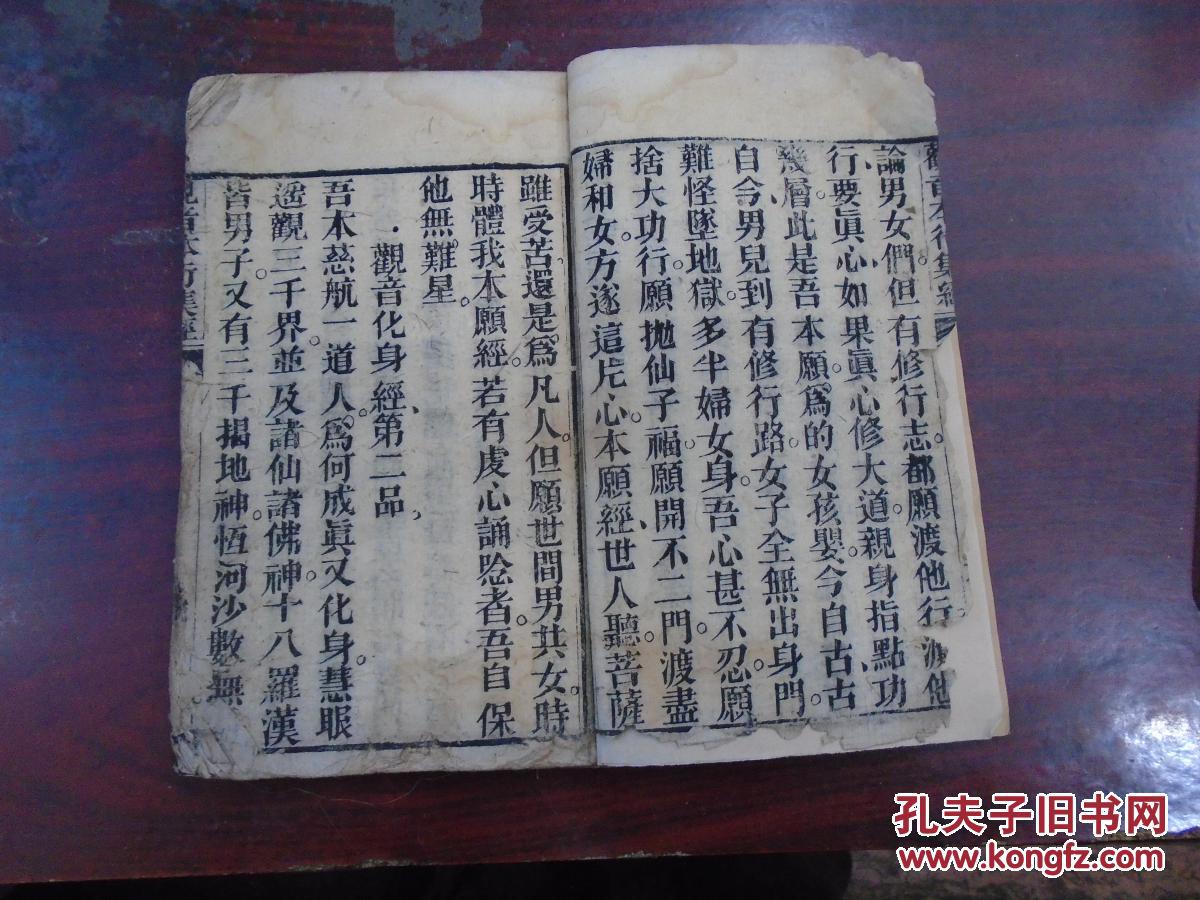 觀音本行集經
論男女。們但有修行志。都願渡他行渡他
行、要眞心如果眞心修大道。親身指點功
幾層。此是吾本願。爲的女孩嬰。今自古古
自今男兒到有修行路。女子全無出身門。
難怪墜地獄。多半婦女身。吾心甚不忍。願
捨大功行。願拋仙子福。願開不二門。渡盡
婦和女。方遂這片心。本願經、世人聽。菩薩
雖受苦。還是爲凡人。但願世間男共女。時
時體我本願經。若有虔心誦唸者。吾自保
他無難星。
觀音化身經、第二品
吾本慈航一道人。爲何成眞又化身。慧眼
遙觀三千界。並及諸仙諸佛神。十八羅漢
皆男子。又有三千揭地神。恆河沙數無
觀音本行集經
孔夫子旧书网
www.kongfz.com